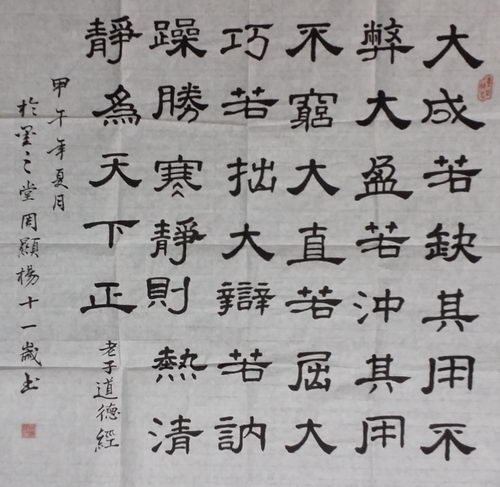 大成若缺其用不
弊大盈若沖其用
不窮大直若屈大
巧若拙大辯若訥
躁勝寒靜則熱清
靜為天下正
老子道德經
甲午年夏月
於墨之堂周顯楊十一歲书